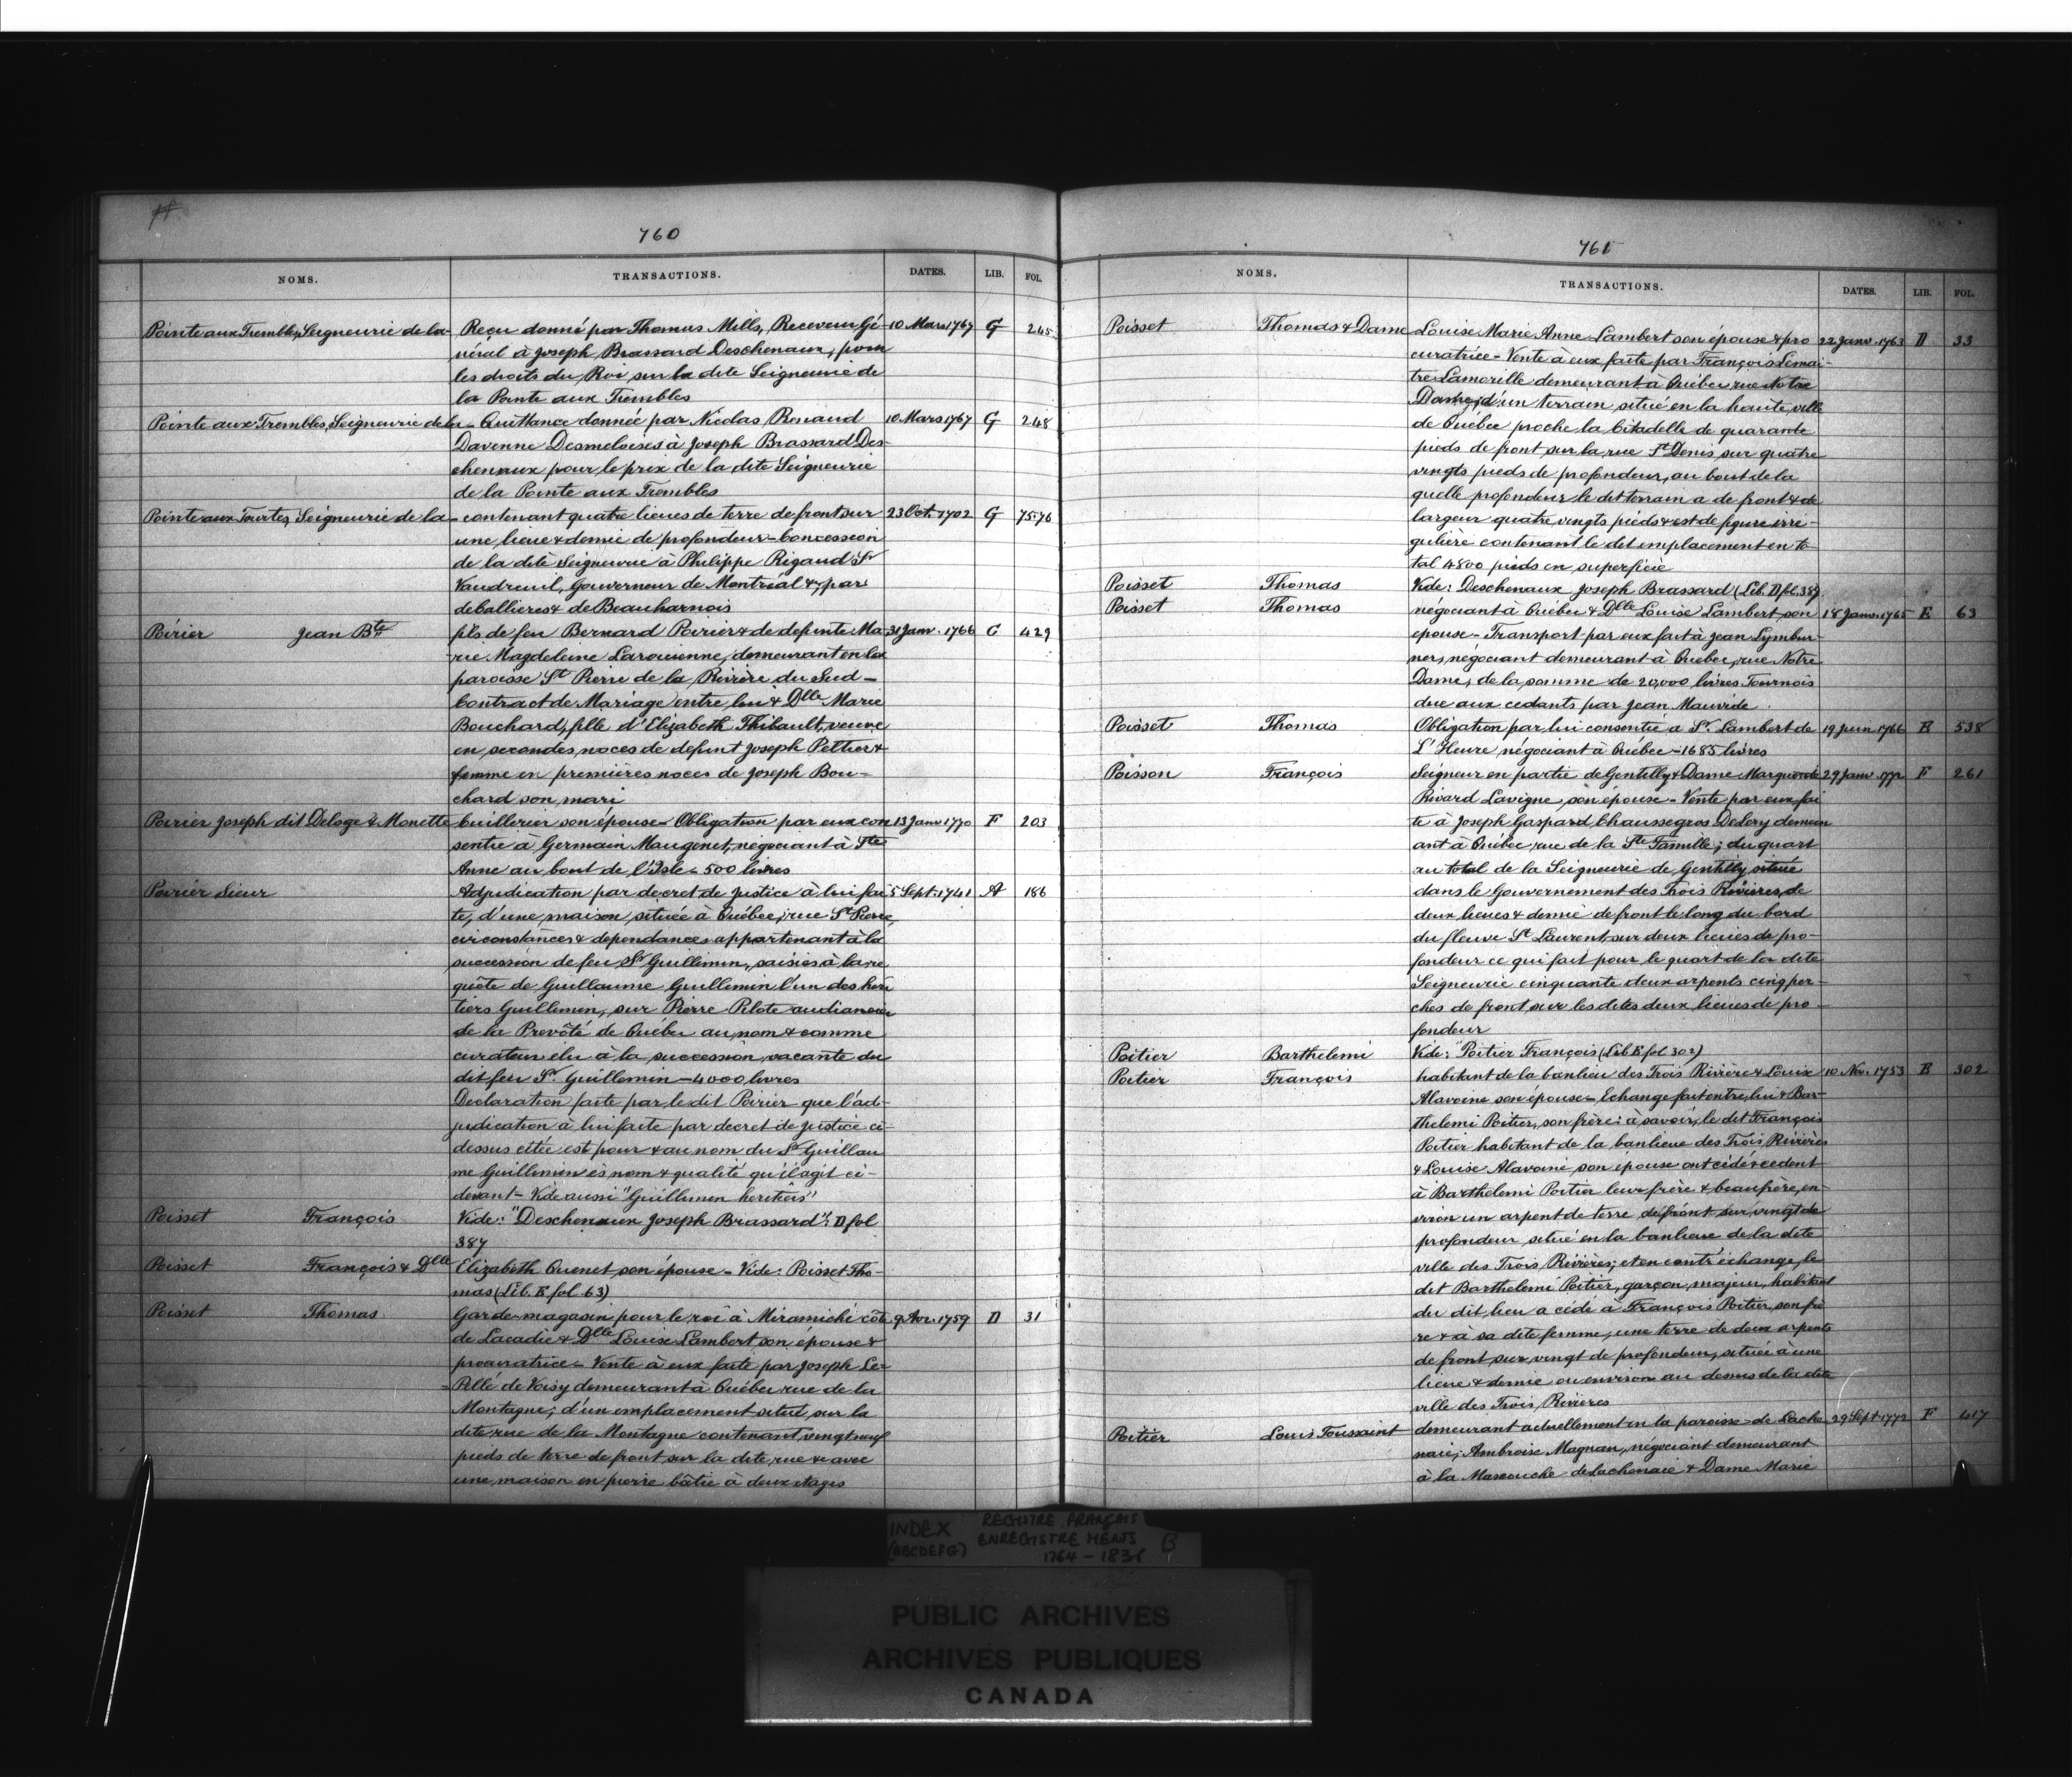 760
NOMS. TRANSACTIONS. DATES. LIB. FOL.
Pointe aux Trembles, Seigneurie de la - Reçu donné par Thomas Mills, Receveur Gé- 10 Mars 1767 G 245
néral à Joseph Brassard Deschenaux, pour
les droits du Roi sur la dite Seigneurie de
la Pointe aux Trembles
Pointe aux Trembles, Seigneurie de la - Quittance donnée par Nicolas Renaud 10 Mars 1767 G 248
Davenne Desmeloises à Joseph Brassard Des-
chenaux pour le prix de la dite Seigneurie
de la Pointe aux Trembles
Pointe aux Tourtes, Seigneurie de la - contenant quatre lieues de terre de front sur 23 Oct. 1702 G 75.76
une lieue & demie de profondeur - Concession
de la dite Seigneurie à Philippe Rigaud Sr
Vaudreuil, Gouverneur de Montréal &, par
de Callieres & de Beauharnois
Poirier Jean Bte fils de feu Bernard Poirier & de defunte Ma- 31 Janv. 1766 C 429
rie Magdeleine Larouienne, demeurant en la
paroisse St Pierre de la Rivière du Sud -
Contract de Mariage entre lui & Dlle Marie
Bouchard, fille d'Elizabeth Thibault, veuve
en secondes noces de defunt Joseph Peltier &
femme en premières noces de Joseph Bou-
chard son mari
Poirier Joseph dit Deloge & Monette Cuillerier son épouse - Obligation par eux con 13 Janv 1770 F 203
sentie à Germain Maugenet, négociant à Ste
Anne au bout de l'Isle - 500 livres
Poirier Sieur Adjudication par decret de Justice à lui fai 5 Sept. 1741 A 186
te, d'une maison située à Québec, rue St Pierre,
circonstances & dependances appartenant à la
succession de feu Sr Guillimin, saisies à la re
quête de Guillaume Guillemin l'un des heri
tiers Guillimin, sur Pierre Pilote audiancier
de la Prevôté de Québec au nom & comme
curateur élu à la succession vacante du
dit feu Sr. Guillemin - 4000 livres
Declaration faite par le dit Poirier que l'ad-
judication à lui faite par decret de justice ci-
dessus citée est pour & au nom du Sr Guillau
me Guillemin ès nom & qualité qu'il agit ci-
devant - Vide aussi "Guillemin heritiers"
Poisset François Vide: "Deschenaux Joseph Brassard": D fol
387
Poisset François & Dlle Elizabeth Ouenet son épouse - Vide: Poisset Tho-
mas (Lib. E fol. 63)
Poisset Thomas Garde-magasin pour le roi à Miramichi côte 9 Avr. 1759 D 31
de Lacadie & Dlle Louise Lambert son épouse &
procuratrice - Vente à eux faite par Joseph Le-
Pellé de Voisy demeurant à Québec rue de la
Montagne; d'un emplacement situé sur la
dite rue de la Montagne contenant vingt neuf
pieds de terre de front sur la dite rue & avec
une maison en pierre bâtie à deux etages
761
NOMS. TRANSACTIONS. DATES. LIB. FOL.
Poisset Thomas & Dame Louise Marie Anne Lambert son épouse & pro 22 Janv. 1763 D 33
curatrice - Vente à eux faite par François Lemai-
tre Lamorille demeurant à Québec rue Notre
Dame, d'un terrain situé en la haute ville
de Québec proche la Citadelle de quarante
pieds de front sur la rue St Denis sur quatre
vingts pieds de profondeur, au bout de la
quelle profondeur le dit terrain a de front & de
largeur quatre vingts pieds & est de figure irre-
gulière contenant le dit emplacement en to
tal 4800 pieds en superficie
Poisset Thomas Vide: Deschenaux Joseph Brassard (Lib. D fol. 387)
Poisset Thomas négociant à Québec & Dlle Louise Lambert son 18 Janv. 1765 E 63
épouse - Transport par eux fait à Jean Lymbur-
ner, négociant demeurant à Quebec, rue Notre
Dame, de la somme de 20,000 livres Tournois
due aux cedants par Jean Mauvide
Poisset Thomas Obligation par lui consentie à Sr. Lambert de 19 Juin 1766 E 538
L'Heure négociant à Québec - 1685 livres
Poisson François Seigneur en partie de Gentilly & Dame Marguerite 29 Janv. 1772 F 261
Rivard Lavigne, son épouse - Vente par eux fai
te à Joseph Gaspard Chaussegros Delery demeur
ant à Québec rue de la Ste Famille; du quart
au total de la Seigneurie de Gentilly située
dans le Gouvernement des Trois Rivières, de
deux lieues & demie de front le long du bord
du fleuve St Laurent, sur deux lieues de pro-
fondeur ce qui fait pour le quart de la dite
Seigneurie cinquante deux arpents cinq per-
ches de front sur les dites deux lieues de pro-
fondeur
Poitier Barthelemi Vide: "Poitier François (Lib. E fol 302)
Poitier François habitant de la banlieu des Trois Rivières & Louise 10 Nov. 1753 E 302
Alavoine son épouse - Echange fait entre lui & Bar-
thelemi Poitier, son frère: à savoir, le dit François
Poitier habitant de la banlieue des Trois Rivières
& Louise Alavoine son épouse ont cédé & cedent
à Barthelemi Poitier leur frère & beaufrère, en-
viron un arpent de terre de front sur vingt de
profondeur situé en la banlieue de la dite
ville des Trois Rivières; et en contr'échange, le
dit Barthelemi Poitier, garçon majeur, habitant
du dit lieu a cédé à François Poitier, son frè
re & à sa dite femme, une terre de deux arpents
de front sur vingt de profondeur, située à une
lieue & demie ou environ au dessus de la dite
ville des Trois Rivières
Poitier Louis Toussaint demeurant actuellement en la paroisse de Lache 29 Sept 1772 F 417
naie; Ambroise Magnan, négociant demeurant
à la Mascouche de Lachenaie & Dame Marie
INDEX REGISTRE FRANÇAIS
(ABCDEFG) ENREGISTREMENTS B
1764 - 1838
PUBLIC ARCHIVES
ARCHIVES PUBLIQUES
CANADA